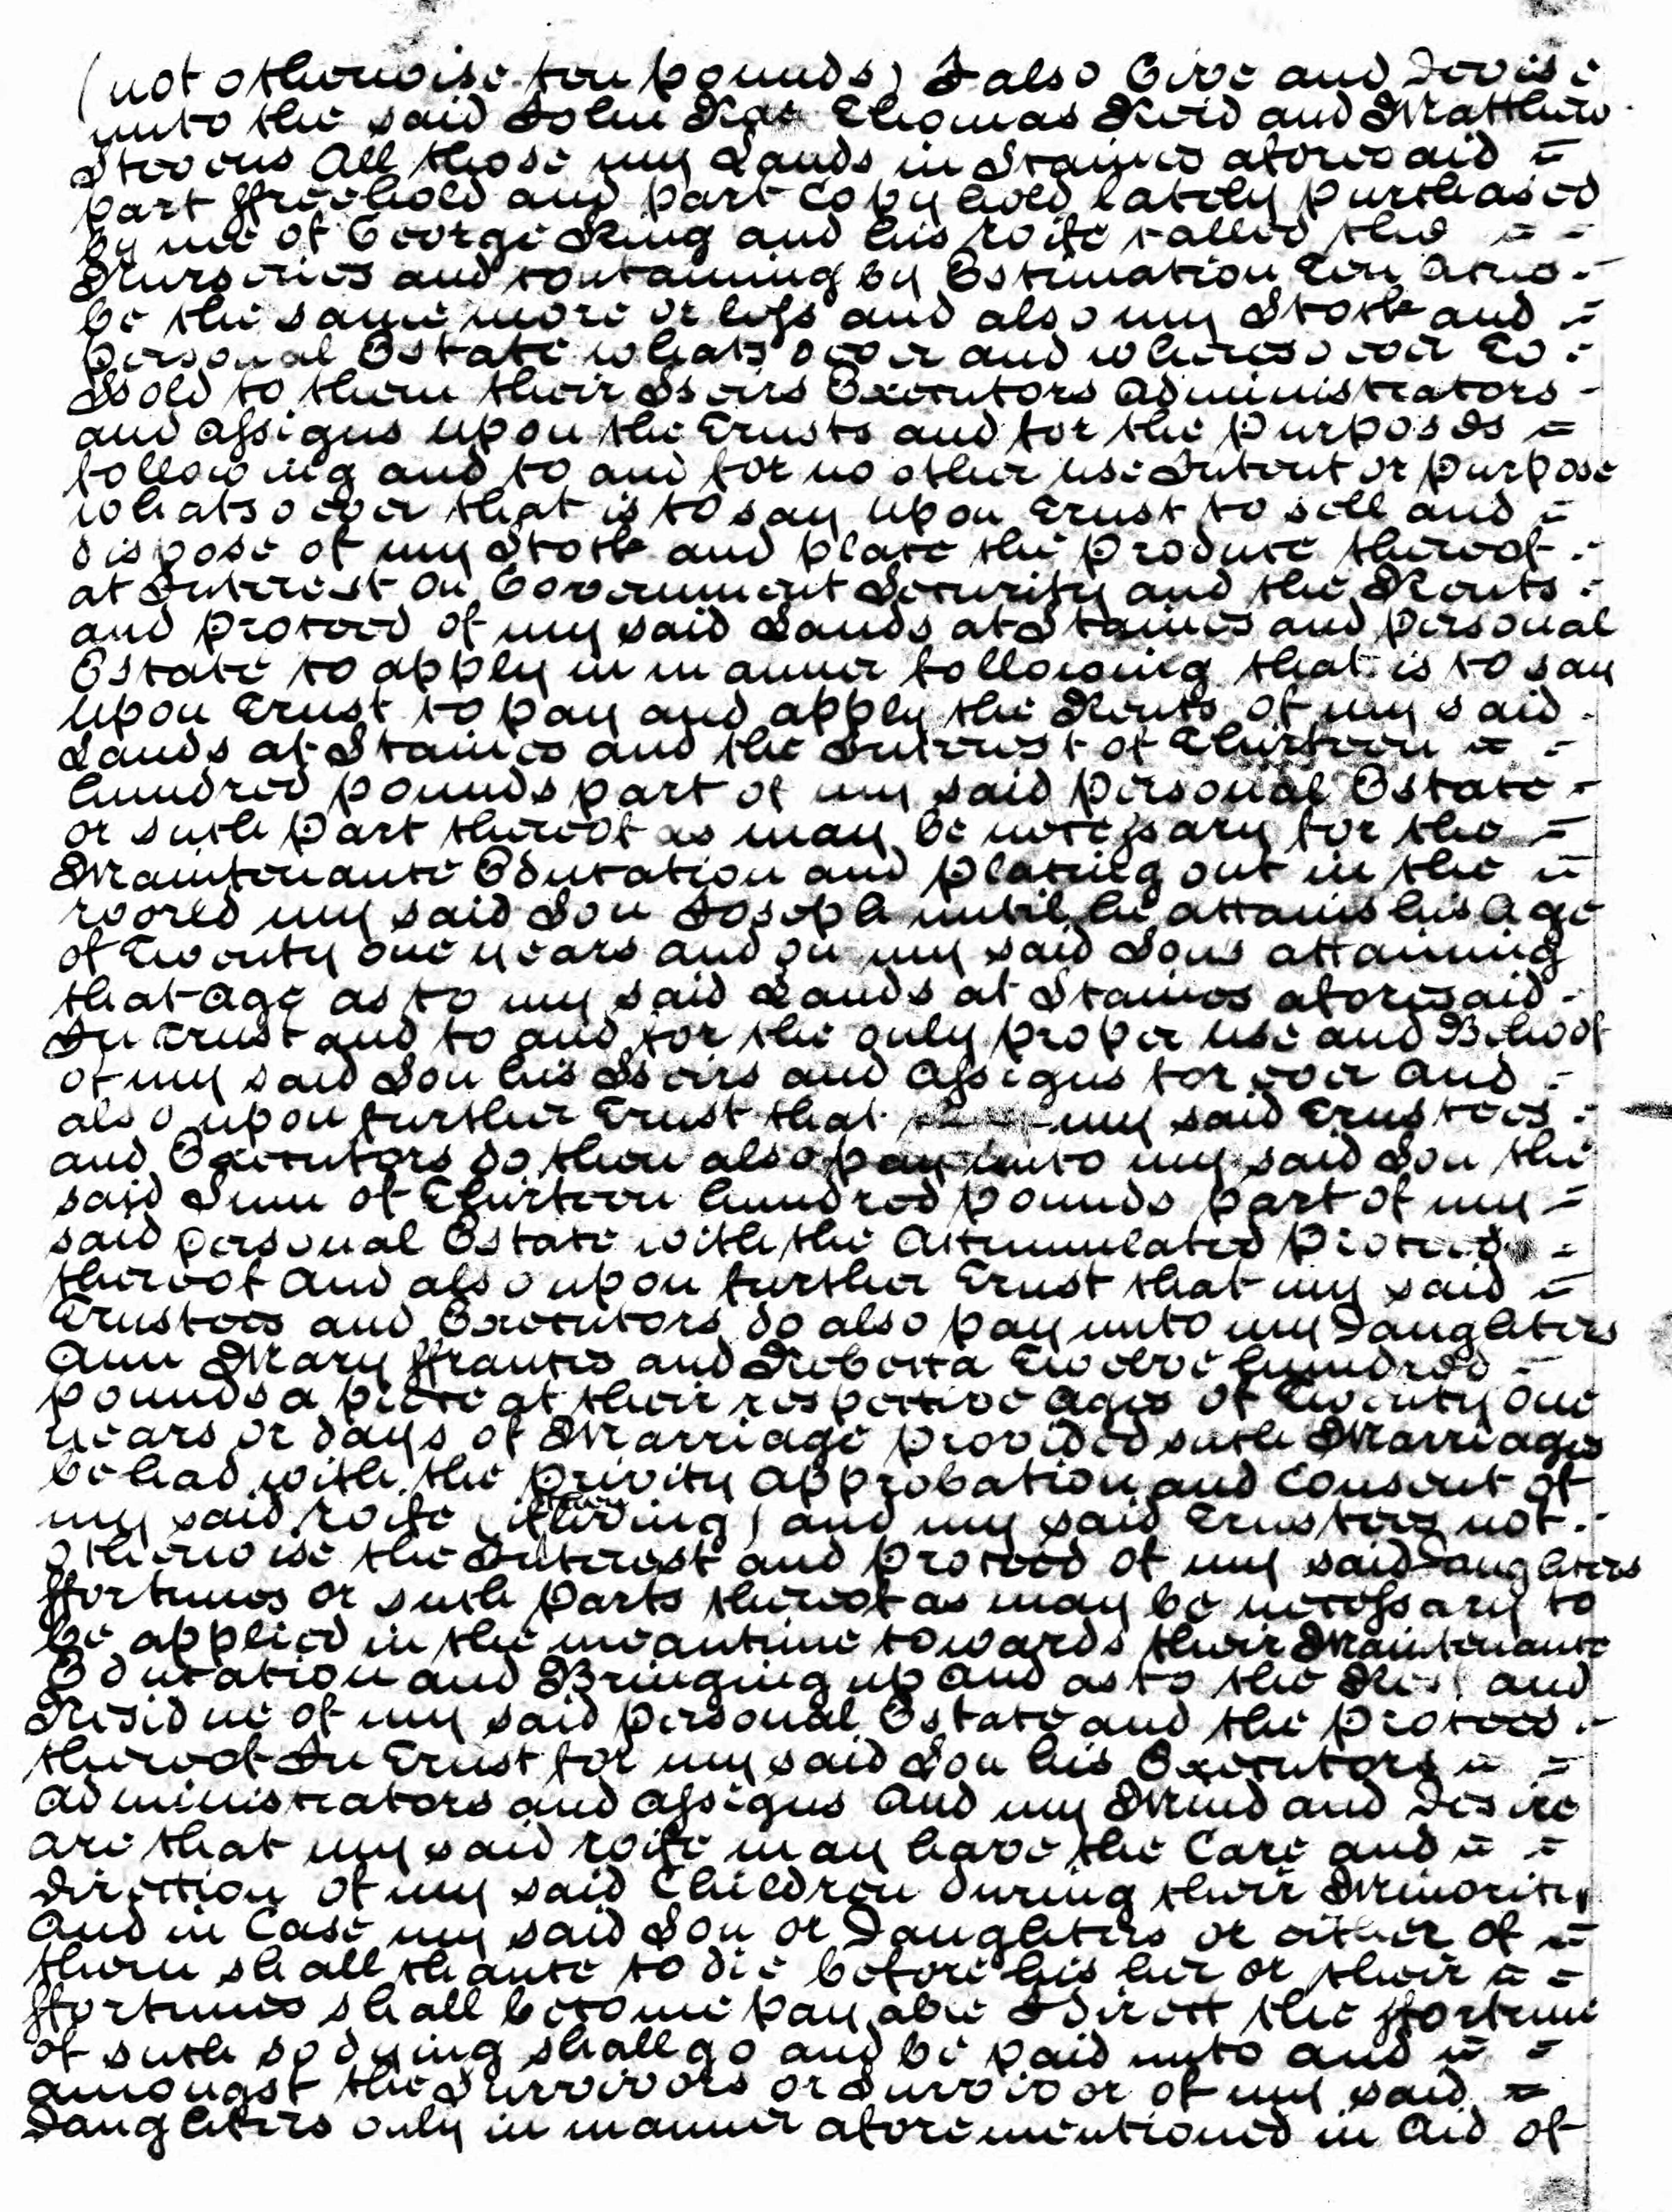 (not otherwise ten pounds) I also Give and Devise
unto the said John Thomas Reid and Matthew
Stevens All those my Lands in Staines aforesaid =
part ffreehold and part Copyhold lately purchased
by me of George King and his wife called the = =
Nurseries and containing by Estimation Ten Acres -
be the same more or less and also my Stock and =
personal Estate whatsoever and wheresoever To -
Hold to them their Heirs Executors Administrators -
and Assigns upon the Trusts and for the purposes =
following and to and for no other use Intent or purpose
whatsoever that is to say upon Trust to sell and =
dispose of my Stock and place the produce thereof -
at Interest on Government Security and the Rents -
and proceed of my said Lands at Staines and personal
Estate to apply in manner following that is to say
upon Trust to pay and apply the Rents of my said -
Lands at Staines and the Interest of Thirteen = -
hundred pounds part of my said personal Estate -
or such part thereof as may be necessary for the =
Maintenance Education and placing out in the =
world my said Son Joseph until he attains his Age
of Twenty one years and on my said Sons attaining
that Age as to my said Lands at Staines aforesaid -
In Trust and to and for the only proper use and Behoof
of my said Son his Heirs and Assigns for ever And -
also upon further Trust that my said Trustees -
and Executors do then also pay unto my said Son the
said Sum of Thirteen hundred pounds part of my =
said personal Estate with the Accumulated Proceeds =
thereof And also upon further Trust that my said =
Trustees and Executors do also pay unto my Daughters
Ann Mary ffrances and Roberta Twelve hundred -
pounds a piece at their respective Ages of Twenty one
years or days of Marriage provided such Marriages
be had with the privity approbation and Consent of
my said wife (if then living) and my said Trustees not -
otherwise the Interest and proceed of my said Daughters
ffortunes or such parts thereof as may be necessary to
be applied in the meantime towards their Maintenance
Education and Bringing up And as to the Rest and
Residue of my said personal Estate and the proceed -
thereof In Trust for my said Son his Executors = =
Administrators and Assigns And my Mind and Desire
are that my said wife may have the Care and = =
Direction of my said Children during their Minority
And in Case my said Son or Daughters or either of =
them shall chance to die before his her or their = =
ffortunes shall become payable I direct the ffortune
of such so dying shall go and be paid unto and = =
amongst the Survivors or Survivor of my said =
Daughters only in manner aforementioned in Aid of